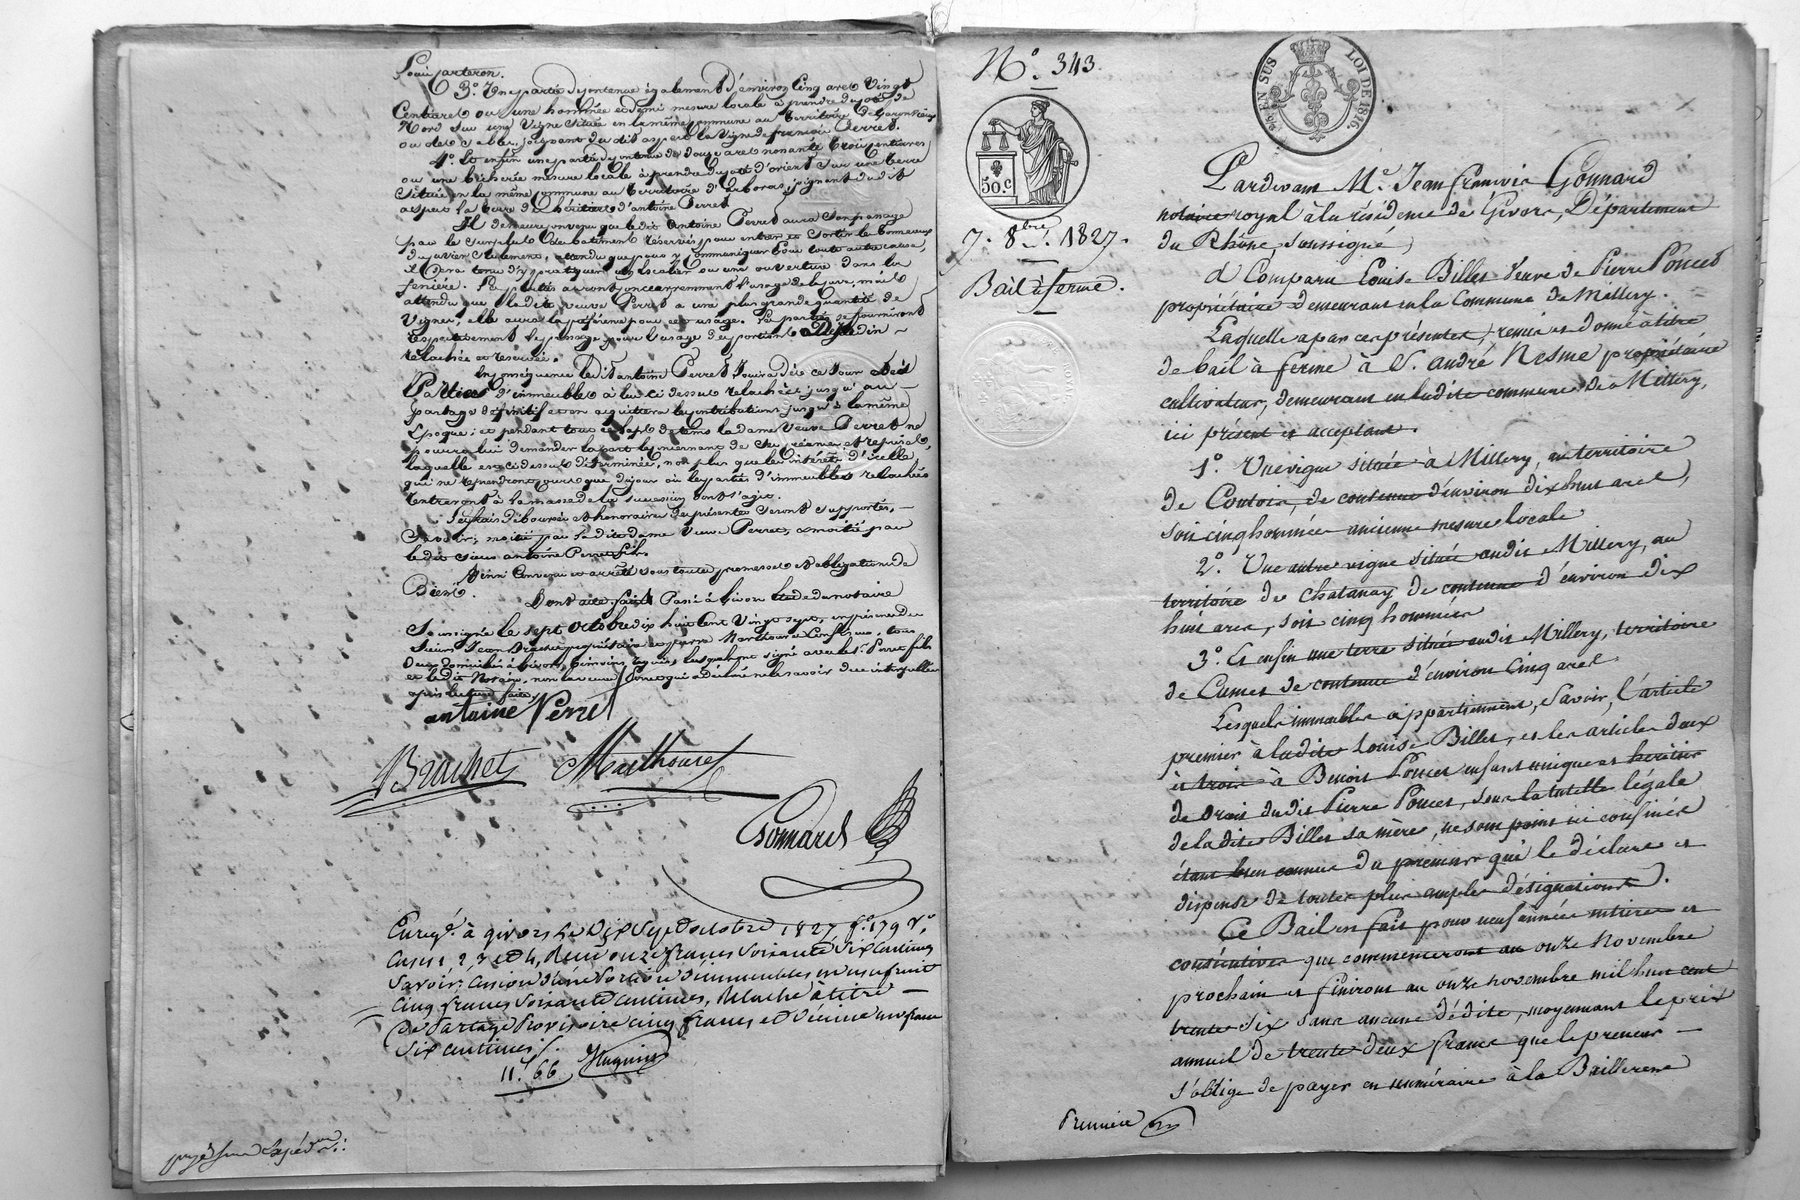 Louis Carteron.
3.° Une partie de contenue également d'environ Cinq ares Vingt
Centiares ou une hommée et demi mesure locale à prendre du côté de
Nord sur une Vigne située en la même commune au territoire de
ou des Sables, joignant du dit aspect la Vigne de francois Perret.
4.° Et enfin une partie de contenue de Douze ares nonante trois centiares
ou une bicherée mesure locale à prendre du côté d'orient sur une terre
située en la même commune au territoire d'arboras, joignant du dit
aspect la terre des héritiers d'antoine Perret
Il demeure convenu que le dit Antoine Perret aura son passage
par le surplus du batiment réservé, pour entrer et sortir les tonneaux
du cuvier seulement, attendu que pour y Communiquer pour toute autre cause,
il sera tenu d'y pratiquer un escalier ou une ouverture dans la
fenière. Les parties auront concurremment l'usage de la cuve, mais
attendu que la dite veuve Perret a une plus grande quantité de
Vignes, elle aura la préférence pour cet usage. Les parties se fourniront
respectivement le passage pour l'usage des portions de Jardin
relachée et réservée.
En conséquence le dit antoine Perret Jouira dès ce Jour des
Parties d'immeubles à lui ci dessus relachées jusqu'au
partage définitif et en acquittera les contributions jusqu'à la même
Epoque; et pendant tout ce laps de tems la dame Veuve Perret ne
pourra lui demander la part le concernant de ses créances et reprises,
laquelle est ci dessus déterminée, non plus que les intérêts d'icelle,
qui ne reprendront cours que du jour où les parties d'immeubles relachées
rentreront à la masse de la succession dont s'agit.
Les frais Déboursés et honoraires des présentes seront supportés,
Savoir; moitié par la dite dame Veuve Perret, et moitié par
le dit sieur antoine Perret fils.
Ainsi Convenu et arrêté sous toutes promesses et obligations de
Biens. Dont acte. fait et Passé à Givors Etude du notaire
Soussigné le sept octobre dix huit cent Vingt sept, en présence de
Sieurs Brachet propriétaire et pierre Marthouret, tous
Deux domiciliés à Givors, témoins requis, lesquels ont signé avec le S.r Perret fils
et le dit Notaire, non la veuve Perret qui a Déclaré ne le savoir de ce interpellée
après lecture faite
antoine Perret
Brachet Marthouret
Gonnard
Enregé. à givors le Dix Sept octobre 1827 f.° 179 V.°
Cases 2, 3 et 4, Reçu onze francs Soixante Six Centimes
Savoir: Cession d'une Portion d'immeubles en usufruit
Cinq francs Soixante Centimes, Relaché à titre
de Partage Provisoire cinq francs et Décime un franc
Six centimes ./.
11.f 66
N.° 343.
50.c
7. 8.bre 1827.
Bail à ferme.
EN SUS LOI DE 1816.
Pardevant M.e Jean francois Gonnard
notaire royal à la résidence de Givors, Département
du Rhône, soussigné,
A Comparu Louise Billet Veuve de Pierre Poncet
propriétaire demeurant en la Commune de Millery.
Laquelle a par ces présentes, remis et donné à titre
de bail à ferme à S.r andré Nesme propriétaire
cultivateur, demeurant en ladite commune de Millery,
ici présent et acceptant.
1.° Une vigne située à Millery, au territoire
de Coutoir, de contenue d'environ dix huit ares,
soit cinq hommées ancienne mesure locale
2.° Une autre vigne située audit Millery, au
territoire de Chatanay de contenue d'environ dix
huit ares, soit cinq hommées
3.° Et enfin une terre située audit Millery, territoire
de Cumes de contenue d'environ Cinq ares
Lesquels immeubles appartiennent, Savoir, l'article
premier à ladite Louise Billet, et les articles deux
et trois à Benoit Poncet enfant unique et héritier
de droit dudit Pierre Poncet, sous la tutelle légale
de la dite Billet sa mère, ne sont point ici confinés
étant bien connus du preneur qui le déclare et
dispense de toutes plus amples désignations.
Ce Bail est fait pour neuf années entières et
consécutives qui commenceront au onze Novembre
prochain et finiront au onze novembre mil huit cent
trente six sans aucune dédite, moyennant le prix
annuel de trente deux francs que le preneur
s'oblige de payer en numéraire à la Bailleresse
Première